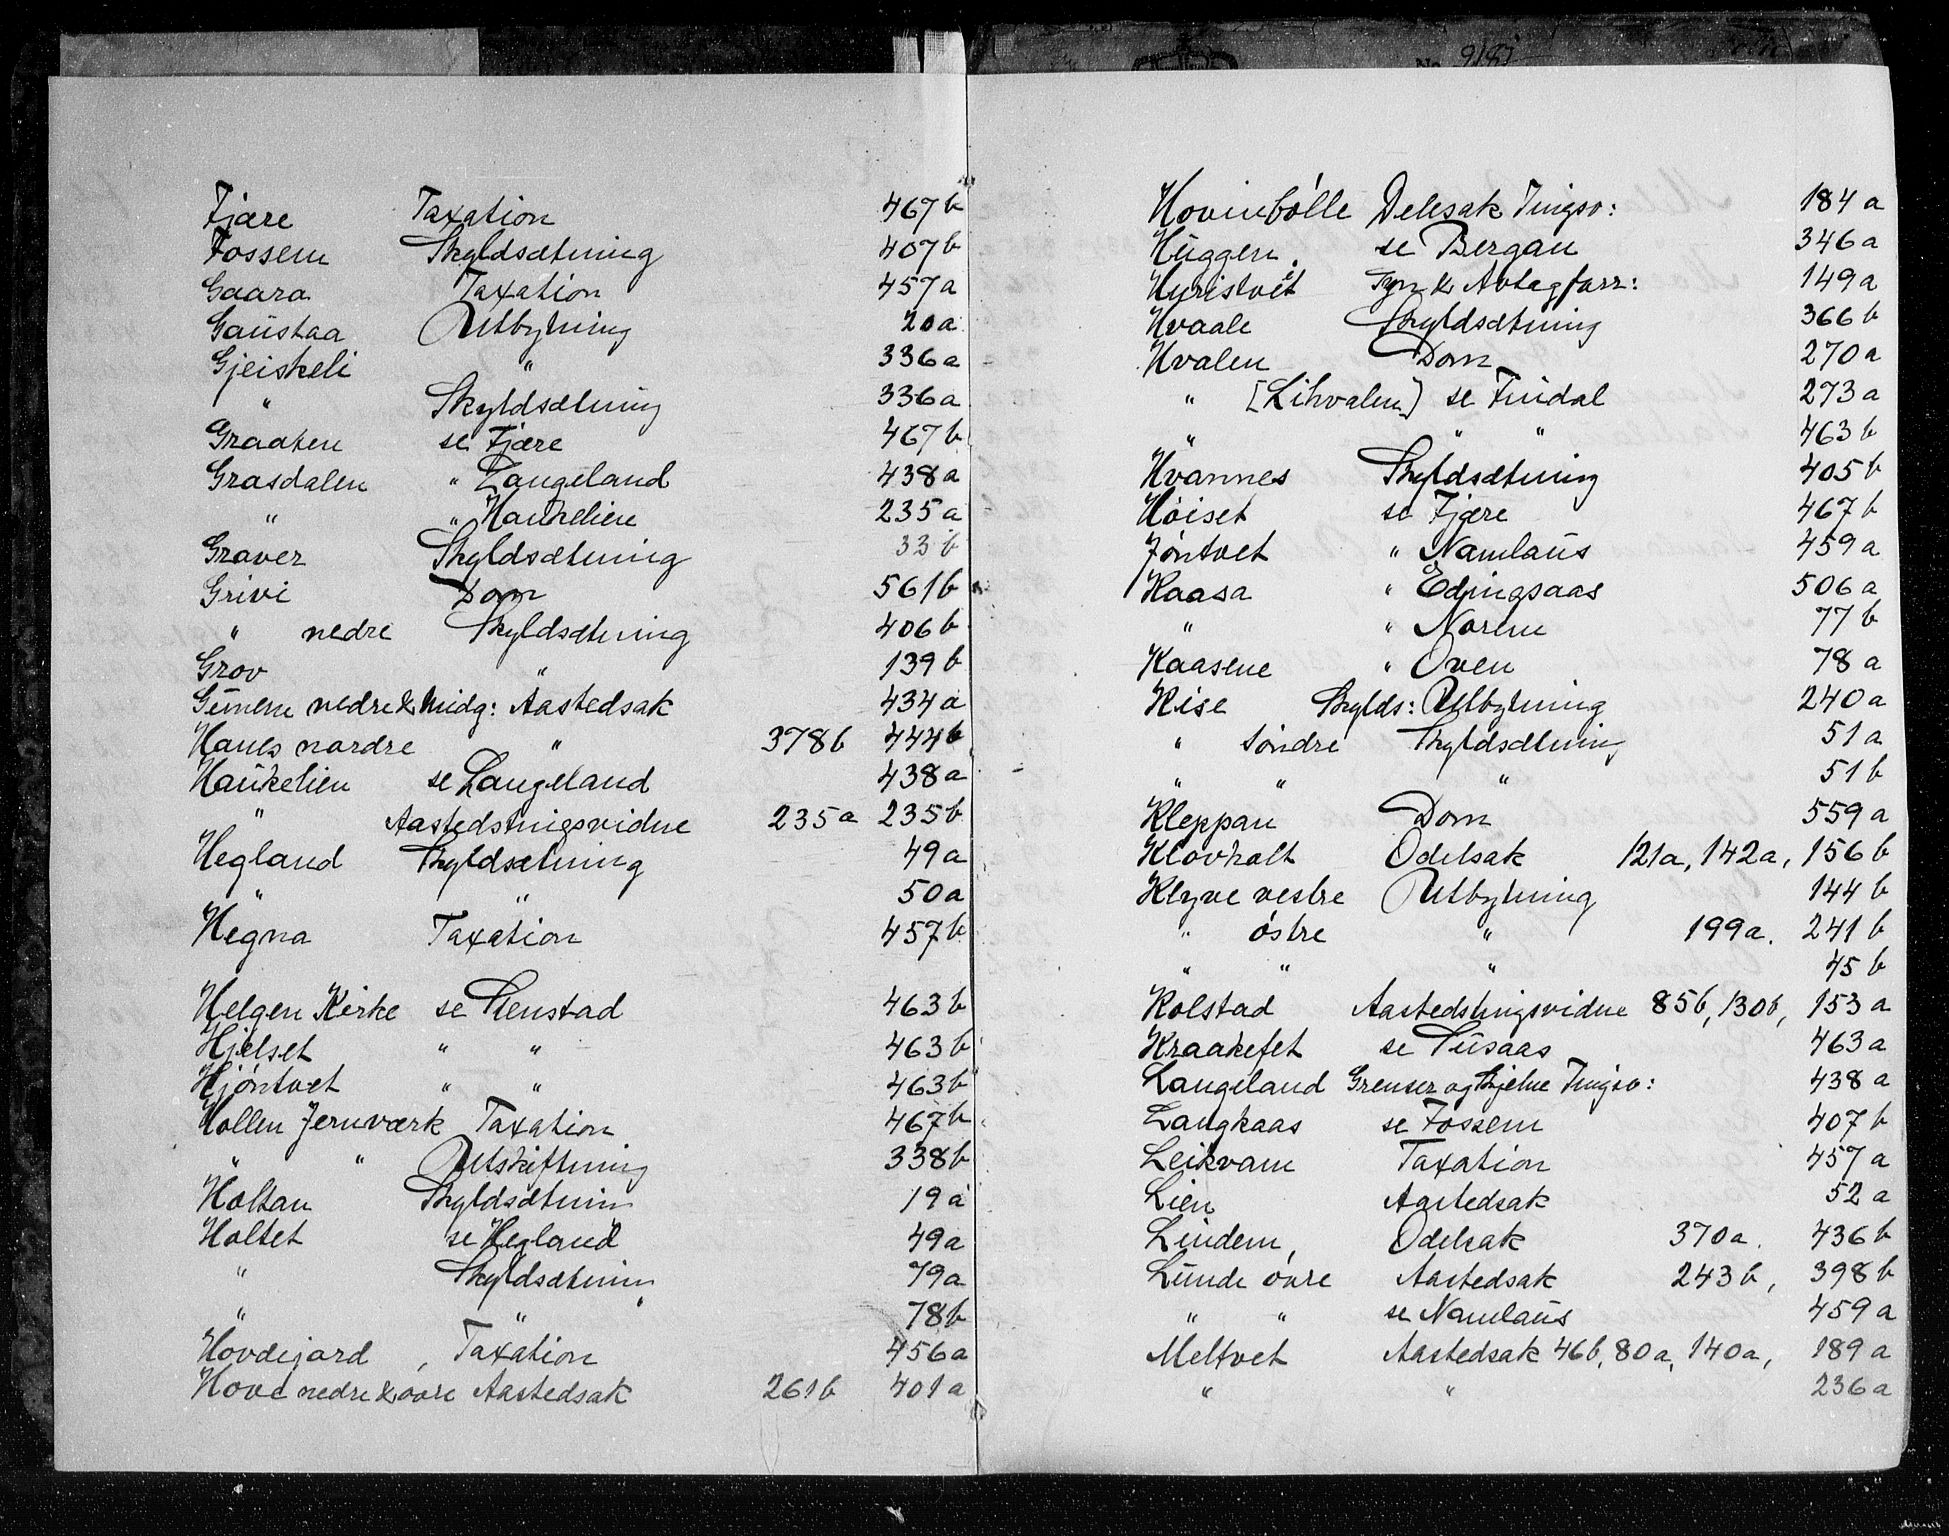 No 9181
Fjære Taxation 467b
Fossem Skyldsætning 407b
Gaara Taxation 457a
Gaustaa Utbytning 20a
Gjeiskeli " 336a
" Skyldsætning 336a
Graaten se Fjære 467b
Grasdalen " Langeland 438a
" " Haukelien 235a
Graver Skyldsætning 33b
Grivi Dom 561b
" nedre Skyldsætning 406b
Grov " 139b
Gunem nedre & midg: Aastedsak 434a
Hanes nordre " 378b 444b
Haukelien se Langeland 438a
" Aastedstingsvidne 235a 235b
Hegland Skyldsætning 49a
" " 50a
Hegna Taxation 457b
Helgen Kirke se Stenstad 463b
Hjelset " " 463b
Hjøntvet " " 463b
Hollen Jernværk Taxation 467b
" " Utskiftning 338b
Holtan Skyldsætnin 19a
Holtet se Hegland 49a
" Skyldsætnin 79a
" " " 78b
Hovdejord , Taxation 456a
Hove nedre & øvre Aastedsak 261b 401a
Hovinbølle Delesak Tingsv: 184a
Huggen se Bergan 346a
Huristvet Syn & Avtagfarr: 149a
Hvaale Skyldsætning 366b
Hvalen Dom 270a
" [Lihvalen] se Findal 273a
" " " 463b
Hvannes Skyldsætning 405b
Høiset se Fjære 467b
Jøntvet " Namlaus 459a
Kaasa " Edningsaas 506a
" " Norem 77b
Kaasene " Oven 78a
Kise Skylds: Utbytning 240a
" søndre Skyldsætning 51a
" " " 51b
Kleppan Dom 559a
Klovholt Odelsak 121a, 142a, 156b
Klyve vestre Utbytning 144b
" østre " 199a. 241b
" " " 45b
Kolstad Aastedstingsvidne 85b, 130b, 153a
Kraakefet se Tusaas 463a
Langeland Grenser og Skjelne Tingsv: 438a
Langkaas se Fossem 407b
Leikvam Taxation 457a
Lien Aastedsak 52a
Lindem, Odelsak 370a. 436b
Lunde øvre Aastedsak 243b, 398b
" " se Namlaus 459a
Meltvet Aastedsak 46b, 80a, 140a, 189a
" " 236a